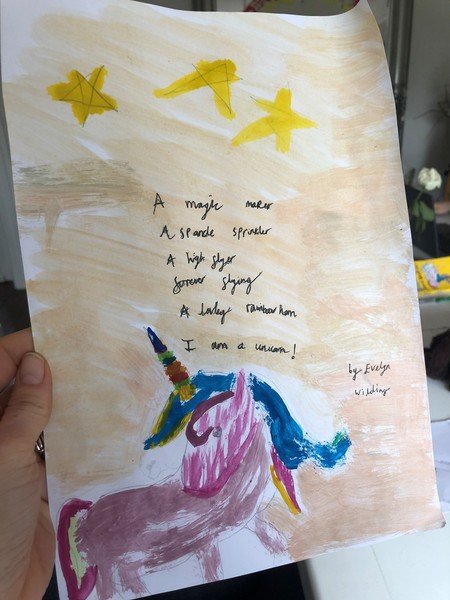 A magic maker
A sparcle sprinkler
A high flyer
forever flying
A lovley rainbow horn
I am a unicorn!
by Evelyn
Wilding